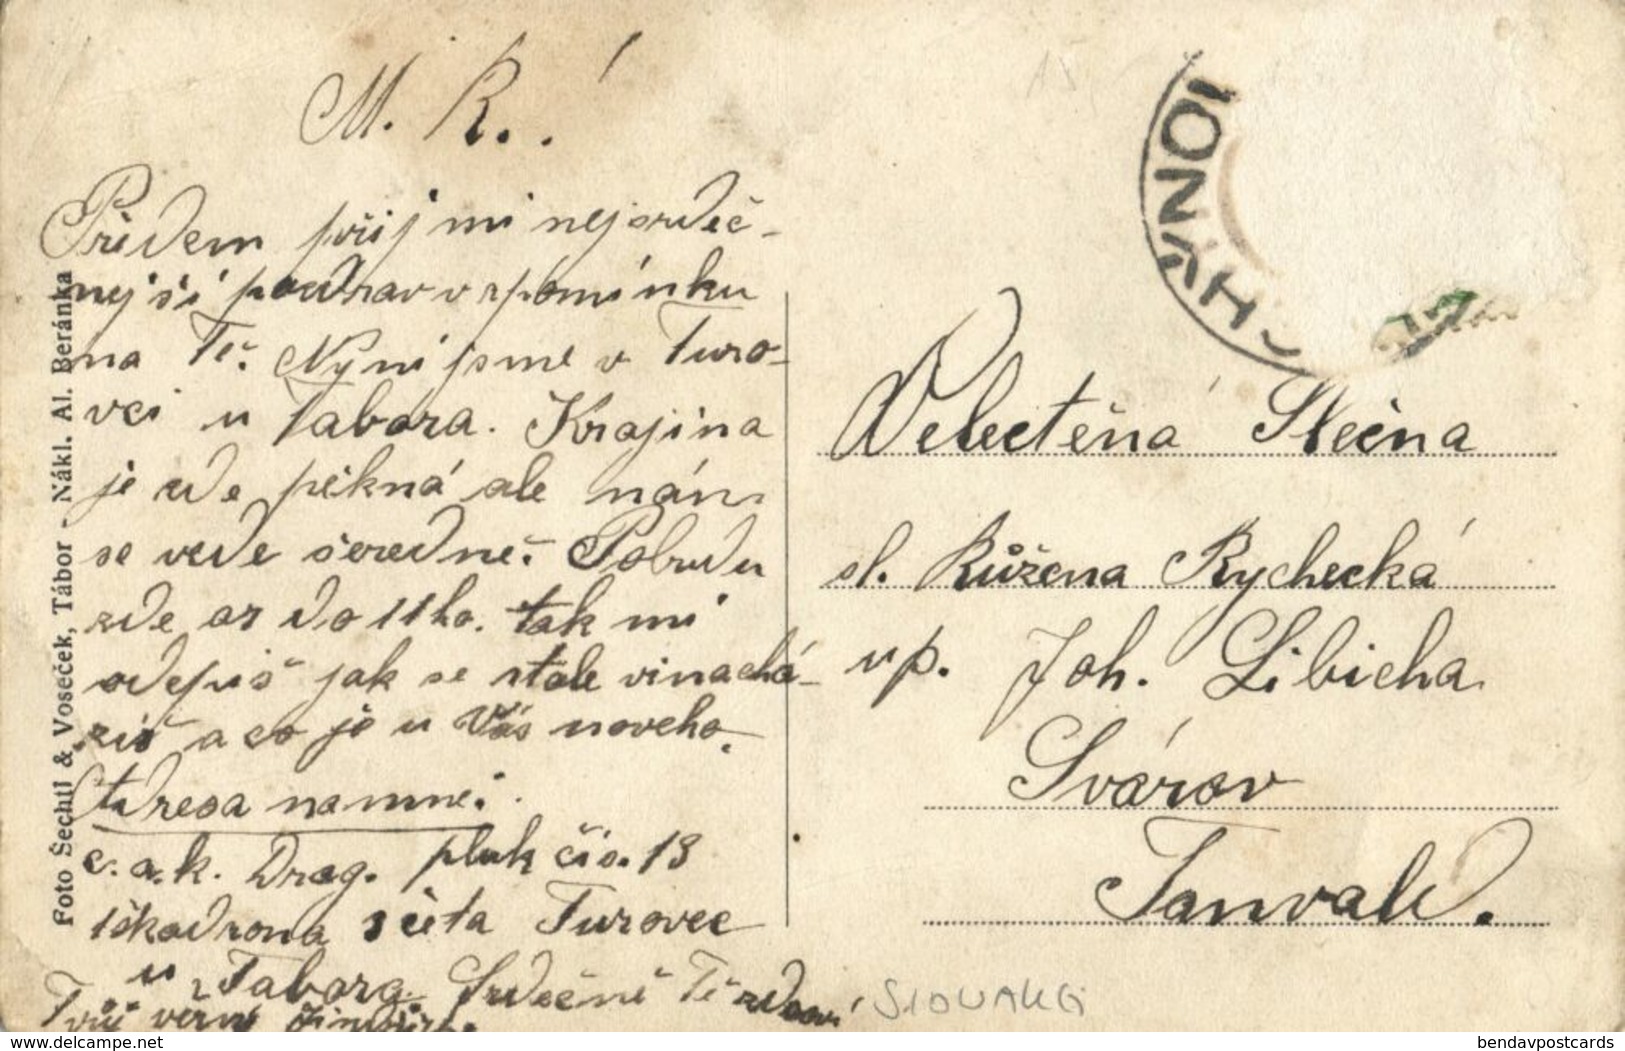 M. R.!
Předem přijmi nejsrdeč-
nejší pozdrav vzpomínku
na Tě. Nyni jsme v Turo-
vci u Tabora. Krajina
je zde pěkná ale nám
se vede šeredně. Pobudu
zde as do 11ho. tak mi
odepiš jak se stale vinachá-
ziš a co je u Vás noveho.
Adresa na mne:
c. a. k. Drag. pluk čis. 13
1škadrona 1 četa Turovec
u Tabora. Srdečně Tě zdraví
Tvůj věrný
Foto Šechtl & Voseček, Tábor - Nákl. Al. Beránka
HÝNOI
Velectěná Slečna
sl. Růžena Rychecká
up. Joh. Libicha
Svárov
Tanvald.
SLOVAKIA
www.delcampe.net
bendavpostcards